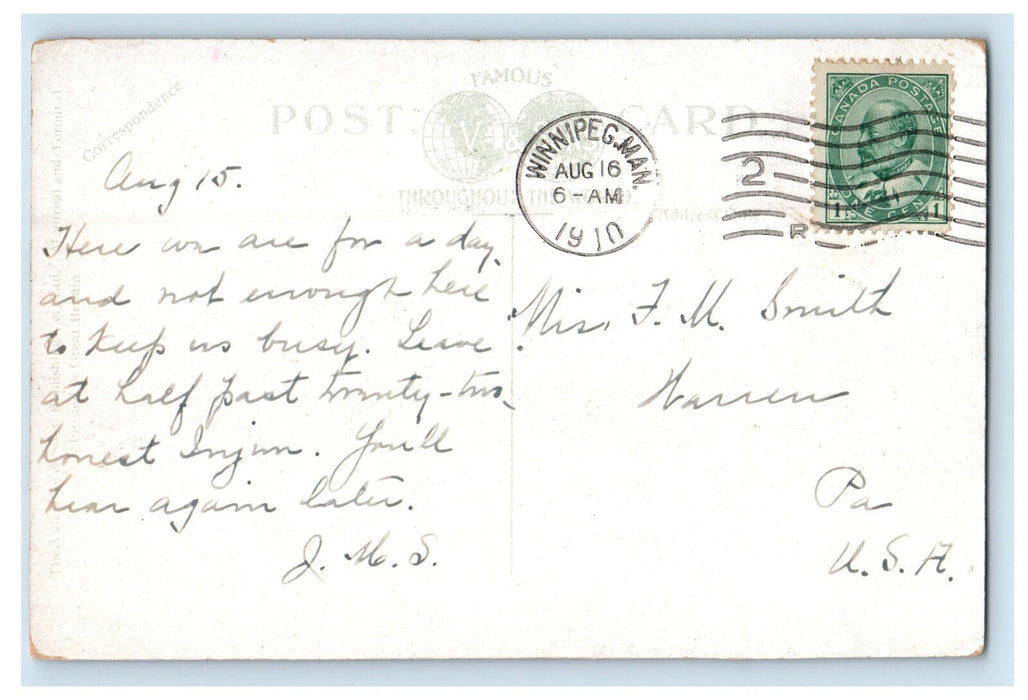 FAMOUS
POST CARD
V. & S.
THROUGHOUT THE WORLD
Correspondence
Address Only
WINNIPEG, MAN.
AUG 16
6-AM
1910
2
R
CANADA POSTAGE
1 ONE CENT 1
Aug 15.
Here we are for a day
and not enough here
to keep us busy. Leave
at half past twenty-two,
honest Injun. You'll
hear again later.
J. M. S.
Miss. F. M. Smith
Warren
Pa
U.S.A.
Montreal and Toronto
Great Britain